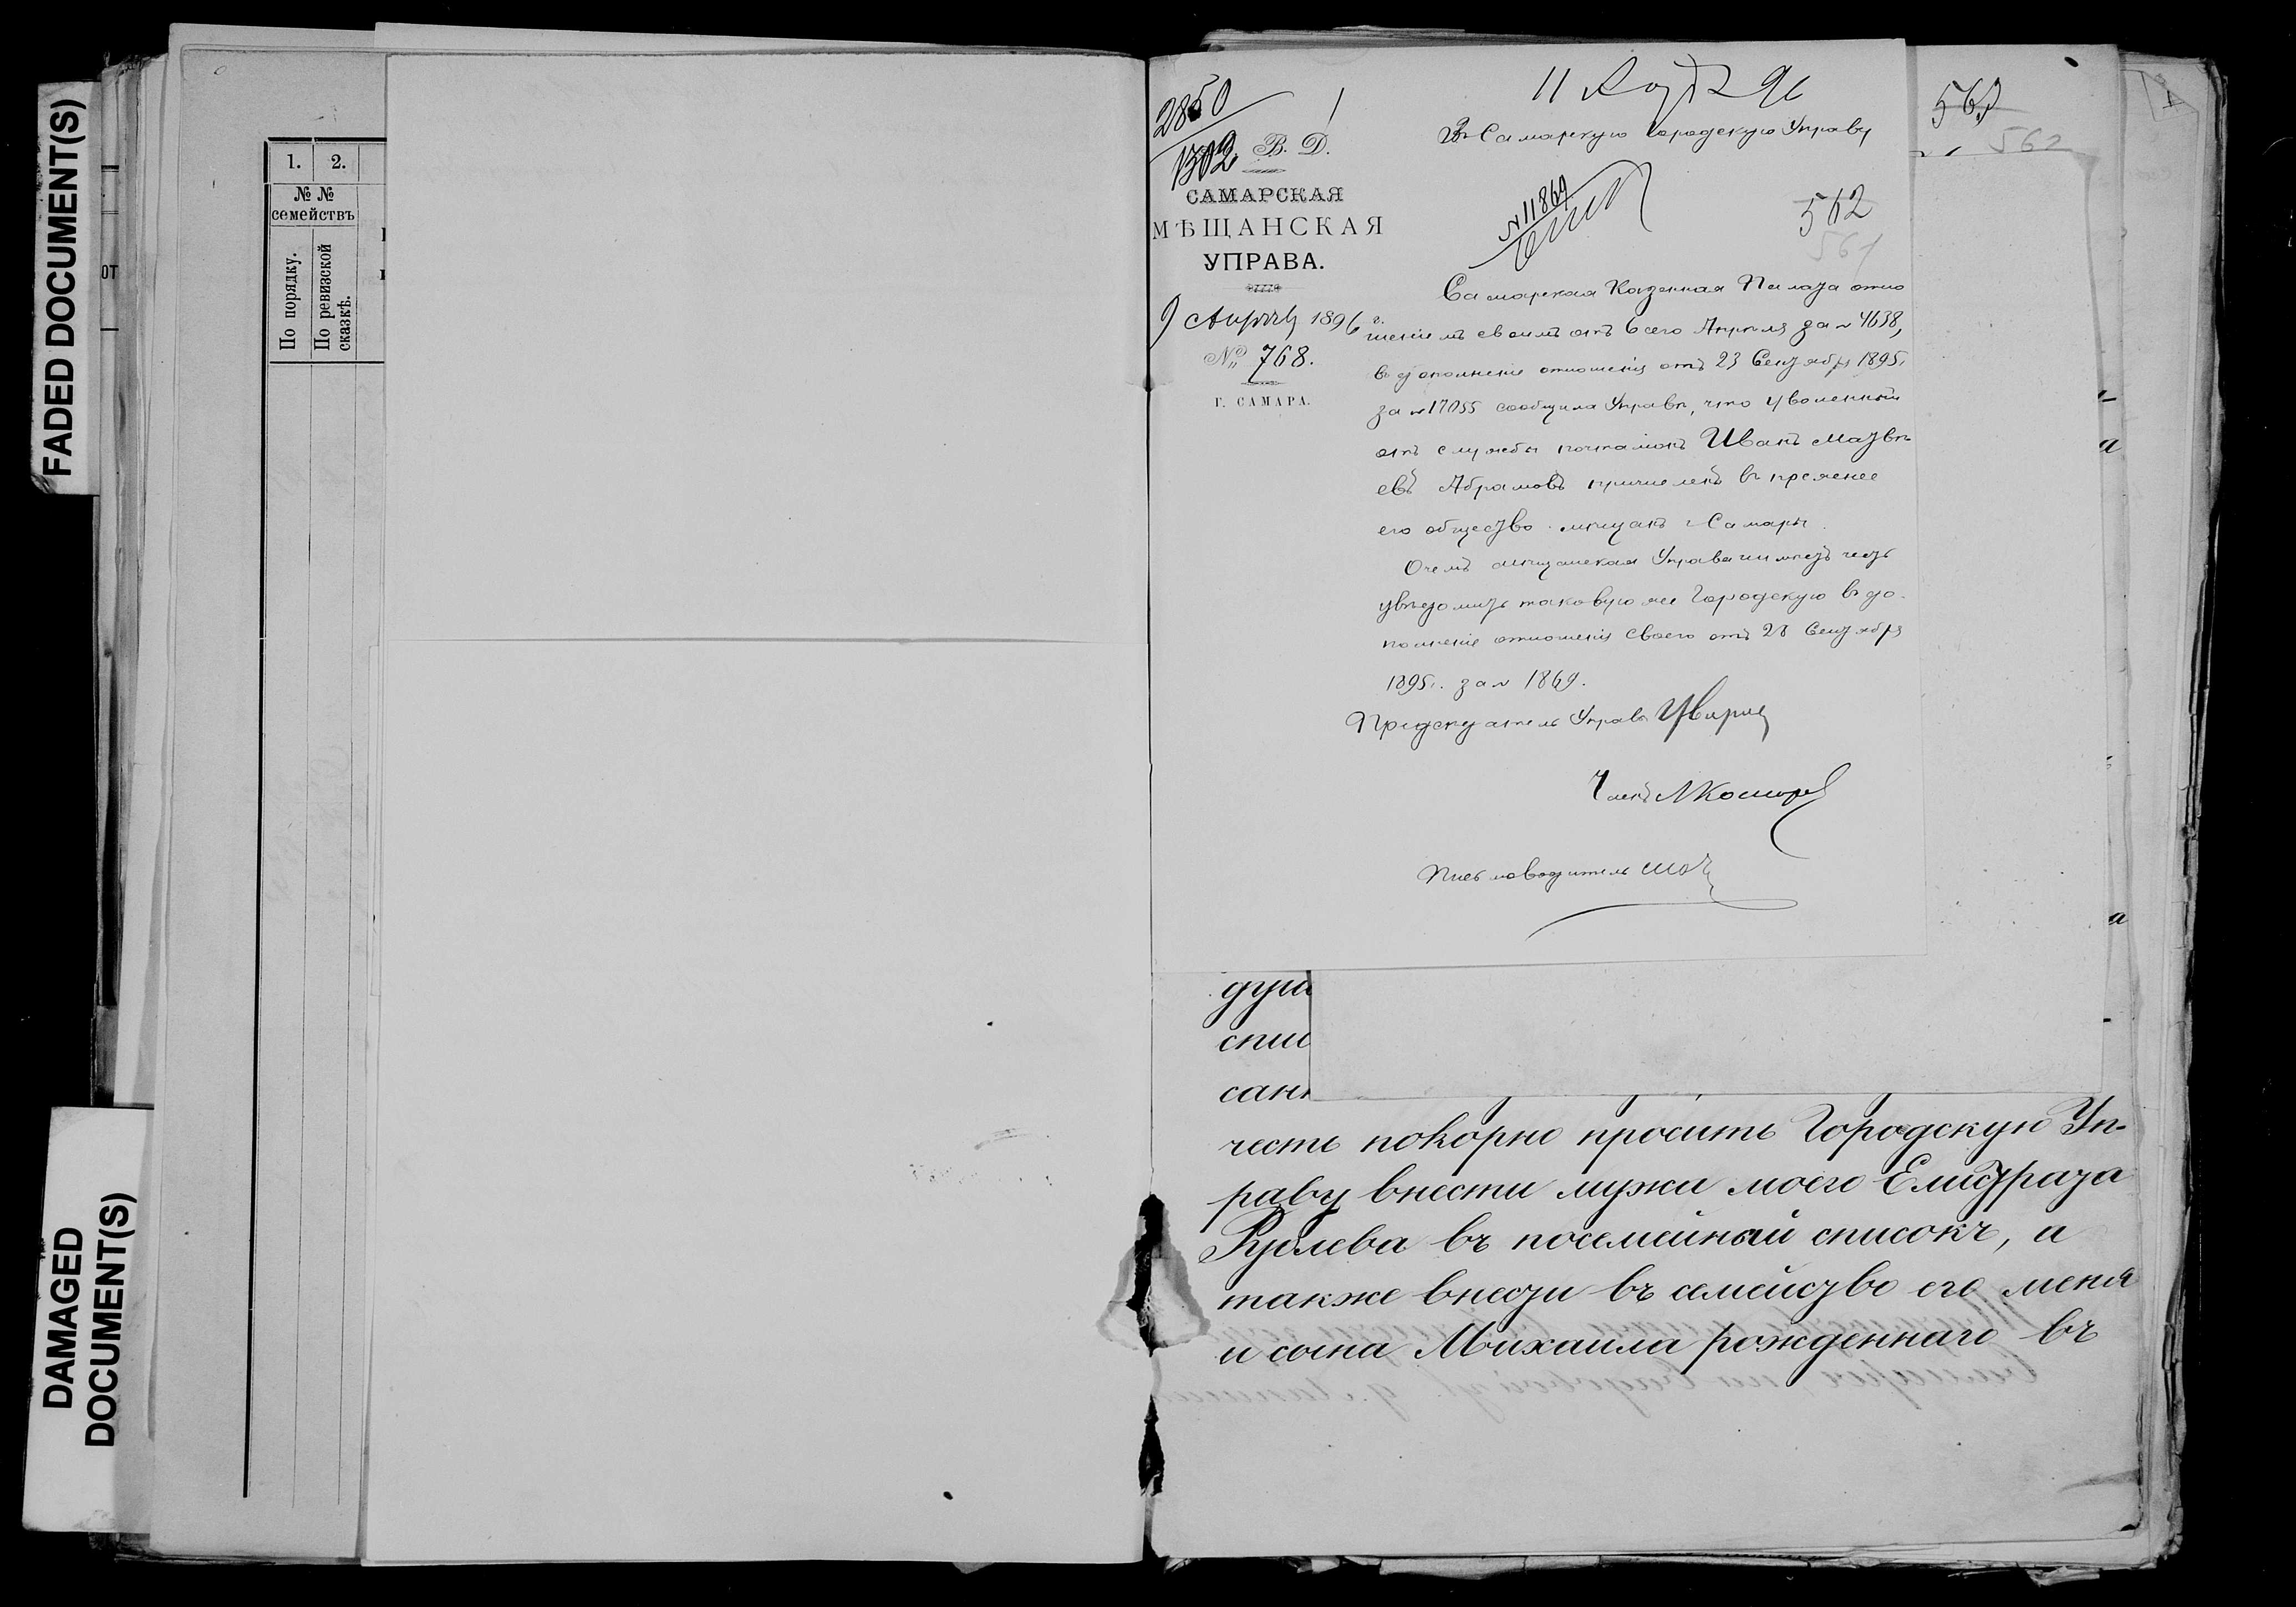 FADED DOCUMENT(S)
DAMAGED
DOCUMENT(S)
1. 2.
№ №
семействъ
По порядку.
По ревизской
сказкѣ.
2850
1302
В. Д.
САМАРСКАЯ
МѢЩАНСКАЯ
УПРАВА.
9 Апрѣля 1896 г.
№ 768.
Г. САМАРА.
11 96
Въ Самарскую Городскую Управу
№ 11869
562
561
563
562
Самарская Казенная Палата отно
шеніемъ своимъ отъ 6 сего Апрѣля за № 4638,
въ дополненіе отношенія отъ 23 Сентября 1895 г.
за № 17055 сообщила Управѣ, что уволенный
отъ службы Иванъ Матвѣ
евъ Абрамовъ причисленъ въ прежнее
его общество мѣщанъ г. Самары.
О чемъ Мѣщанская Управа имѣетъ честь
увѣдомить таковую же Городскую въ до-
полненіе отношенія своего отъ 28 Сентября
1895 г. за № 1869.
Предсѣдатель Управы
Членъ
Письмоводитель
душ
спис
санн
честь покорно просить Городскую Уп-
раву внести мужа моего
въ посемейный списокъ, и
также внести въ семейство его меня
и сына Михаила рожденнаго въ